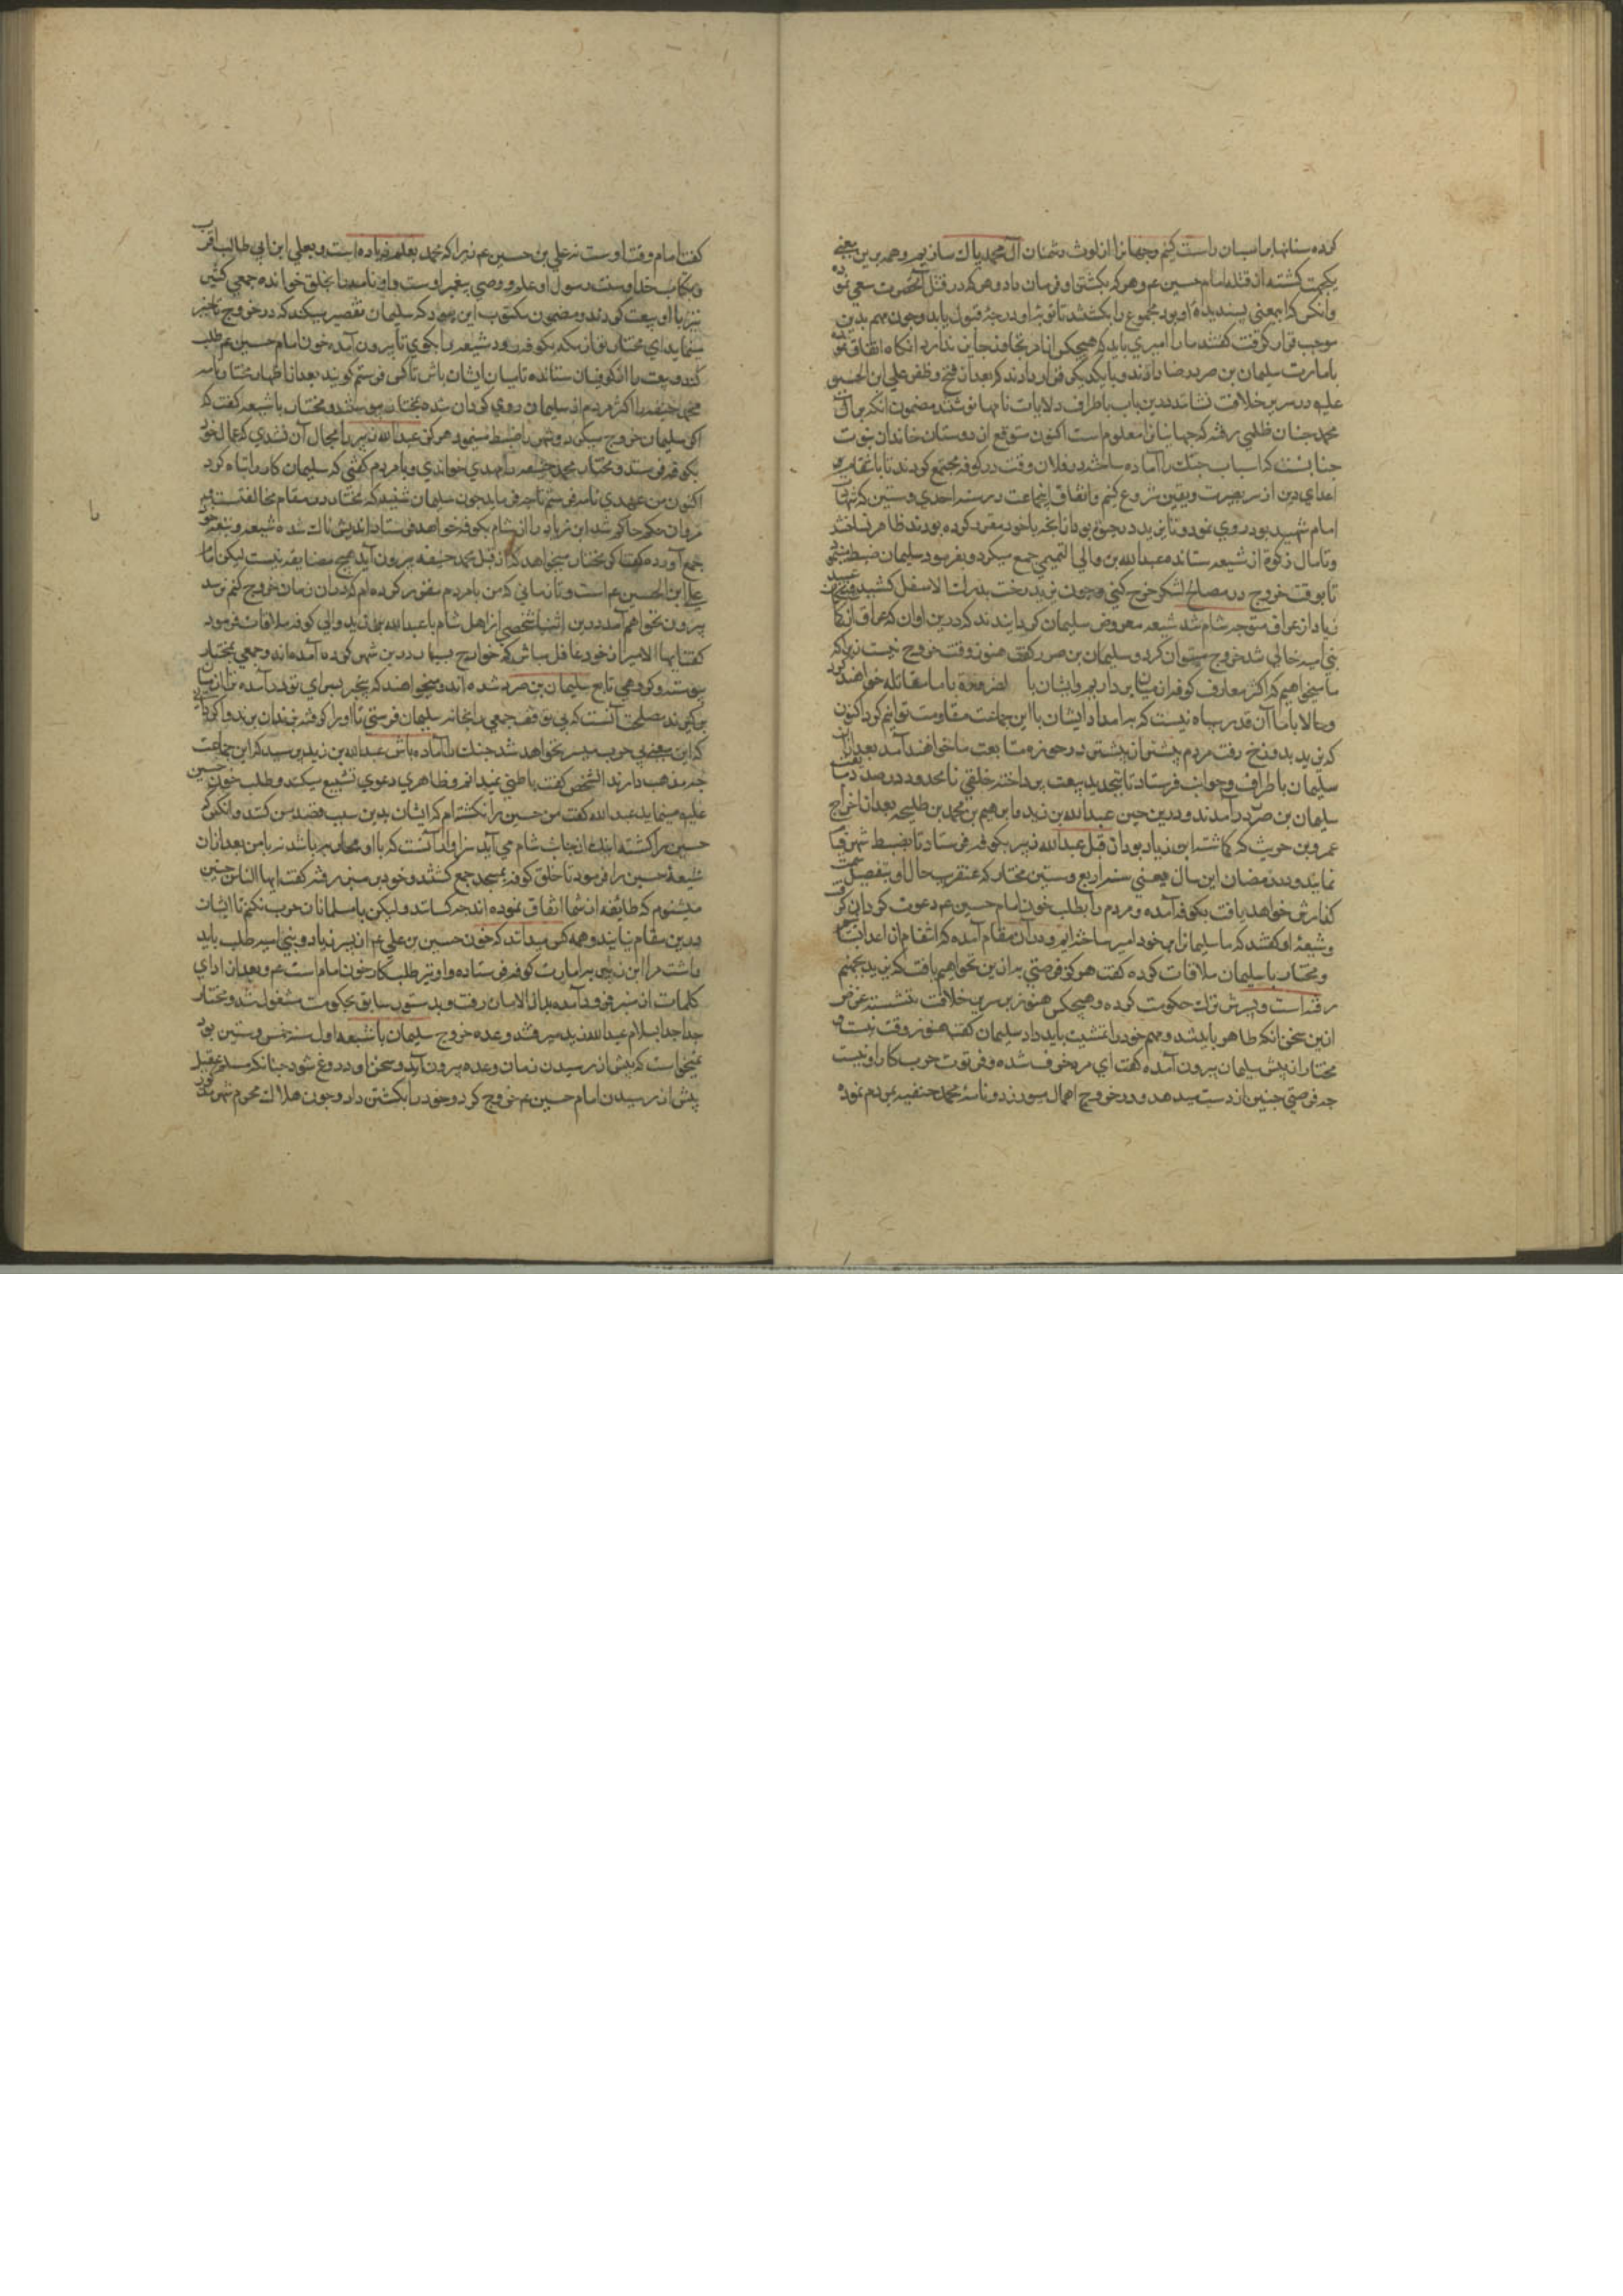 کرده سنانها بر اسبان راست کنیم و جهانرا از لوث دشمنان آل محمد پاک سازیم و همه برین معنی
یکجهت گشته از قتله امام حسین عم و هر که بکشتن او فرمان داد و هر که در قتل آنحضرت سعی نموده
وانکس که اینمعنی پسندیده او بود مجموع را بکشند تا توبه او درجهٔ قبول یابد و چون مهم بدین
موجب قرار گرفت گفتند ما را امیری باید که هیچکس از امر تجاوز جایز ندارد انکاه اتفاق نموده
بامارت سلیمان بن صرد رضا دادند و با یکدیگر قرار دادند که بعد از فتح و ظفر علی ابن الحسین
علیه در سریر خلافت نشانند درین باب باطراف ولایات نامها نوشتند مضمون آنکه بر آل
محمد چنان ظلمی رفته که جهانیانرا معلوم است اکنون متوقع از دوستان خاندان نبوت
چنانست که اسباب جنگ را آماده ساخته در فلان وقت در کوفه مجتمع کردند تا بانتقام
اعدای دین از سر بصیرت و یقین شروع کنیم و اتفاق اینجماعت در سنه احدی و ستین که
امام شهید بود روی نمود و تا یزید در بود بنا بخیر با خود مقرر کرده بودند ظاهر نساختند
و تا مال زکوة از شیعه ستانده عبدالله بن والی التمیمی جمع میکرد و بفرمود سلیمان ضبط مینمود
تا بوقت خروج در مصالح لشکر خرج کنی و چون یزید رخت بدرک الاسفل کشید
زیاد از عراق متوجه شام شد شیعه معروض سلیمان گردانیدند که درین اوان که عراق از
بنی امیه خالی شد خروج میتوان کرد و سلیمان بن صرد گفت هنوز وقت خروج نیست زیرا که
ما میخواهیم که اکثر معارف کوفه از میان برداریم و ایشان با ما مقاتله خواهند کرد
و حالا با ما آن قدر سپاه نیست که بر امداد ایشان با این جماعت مقاومت توانیم کرد اکنون
که یزید بدوزخ رفت مردم بیشتر از پیشتر در حوزه متابعت ما خواهند آمد بعد از آن
سلیمان باطراف و جوانب فرستاد تا بتجدید بیعت پرداخته خلقی نامحدود در صدد
سلیمان بن صرد در آمدند و درین حین عبدالله بن زید و ابراهیم بن محمد بن طلیحه بعد از اخراج
عمرو بن حریث که گماشته ابن زیاد بود از قبل عبدالله زبیر بکوفه فرستاد تا بضبط شهر قیام
نمایند و در رمضان این سال یعنی سنه اربع و ستین مختار که عنقریب حال او بتفصیل سمت
گذارش خواهد یافت بکوفه آمده و مردم را بطلب خون امام حسین عم دعوت کردن گرفت
و شیعهٔ او گفتند که ما سلیمانرا بر خود امیر ساخته ایم و در آن مقام آمده که انتقام از اعدا
و مختار با سلیمان ملاقات کرده گفت هرگز فرصتی به از این نخواهیم یافت که یزید بجهنم
رفته است و پسرش ترک حکومت کرده و هیچکس هنوز بر سریر خلافت ننشسته غرض
ازین سخن آنکه ظاهر باید شد و مهم خود را تمشیت باید داد سلیمان گفت هنوز وقت نیست
مختار از پیش سلیمان بیرون آمده گفت این مرد خرف شده و فرتوت حرب کار او نیست
چه فرصتی چنین از دست میدهد و در خروج اهمال میورزد و نامهٔ محمد حنفیه بمردم نموده
گفت امام وقت اوست نه علی بن حسین عم زیرا که محمد بعلم زیاده است و بعلی ابن ابی طالب اقرب
و بکتاب خدا و سنت رسول او علم و وصی پیغمبر اوست و این نامه را بخلق خوانده جمعی کثیر
نیز با او بیعت کردند و مضمون مکتوب این بود که سلیمان تقصیر میکند که در خروج تاخیر
مینماید ای مختار تو از مکه بکوفه رو و شیعه را بگوی تا بیرون آیند و خون امام حسین عم طلب
کنند و بیعت ما از کوفیان ستانده تا میان ایشان باش تا کس فرستم گویند بعد از اظهار مختار نامه
محمد حنفیه را اکثر مردم از سلیمان روی گردان شده بمختار پیوستند و مختار با شیعه گفت که
اگر سلیمان خروج میکرد و شهر را ضبط مینمود هرگز عبدالله زبیر را مجال آن نشدی که عمال خود
بکوفه فرستد و مختار محمد حنفیه را مهدی خواندی و با مردم گفتی که سلیمان کار را تباه کرد
اکنون من عهدی نامه فرستم تا چه فرماید چون سلیمان شنید که مختار در مقام مخالفتست و
مروان حکم حاکم شد ابن زیاد را از شام بکوفه خواهد فرستاد اندیشناک شده شیعه و
جمع آورده گفت که مختار میخواهد که از قبل محمد حنفیه بیرون آید هیچ مضایقه نیست لیکن اما
علی ابن الحسین عم است و تا زمانی که من با مردم مقرر کرده ام که در آن زمان خروج کنم نرسد
بیرون نخواهم آمد درین اثنا شخصی از اهل شام با عبدالله بن زید والی کوفه ملاقات فرمود
گفت ایها الامیر از خود غافل مباش که خوارج بسیار درین شهر گرد آمده اند و جمعی بمختار
پیوسته و گروهی تابع سلیمان بن صرد شده اند و میخواهند که پنجره بسرای تو درآمده
برگیرند مصلحت آنست که بی توقف جمعی را بخانه سلیمان فرستی تا او را گرفته بزندان برند و
که این معنی بی حرب میسر نخواهد شد جنگ را آماده باش عبدالله بن زید پرسید که این جماعت
چه مذهب دارند الشخص گفت باطنی نمیدانم و ظاهری دعوی تشیع میکند و طلب خون حسین
علیه مینمایند عبدالله گفت من حسین را نکشته ام که ایشان بدین سبب قصد من کنند و انکس که
حسین را کشته اینک از جانب شام می آید سزاوار آنست که با او محاربه باشد نه با من بعد از آن
شیعهٔ حسین را فرمود تا خلق کوفه بمسجد جمع گشتند و خود بر منبر رفته گفت ایها الناس چنین
میشنوم که طایفه از شما اتفاق نموده اند چه کسانند ولیکن با مسلمانان حرب نکنم تا ایشان
درین مقام نیایند و همه کس میداند که خون حسین بن علی عم از پسر زیاد و بنی امیه طلب باید
داشت مرا ابن زبیر بامارت کوفه فرستاده و او نیز طلبکار خون امام است عم و بعد از ادای
کلمات از منبر فرود آمده بدار الامارت رفت و بدستور سابق بحکومت مشغول شد و مختار
جدا جدا بسلام عبدالله زید میرفتند و وعده خروج سلیمان با شیعه اول سنه خمس و ستین بود
نمیخواست که پیش از رسیدن زمان وعده بیرون آید و سخن او دروغ شود چنانکه مسلم عقیل
پیش از رسیدن امام حسین عم خروج کرد و خود را بکشتن داد و چون هلال محرم شهر مذکور